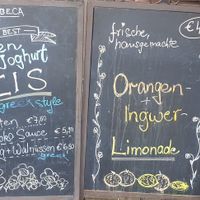 BECA
BEST
en
Joghurt
EIS
greek style
ten €3,90
ko Sauce €5,10
g+Walnüssen €6,50
€4
frische,
hausgemachte
Orangen-
+
Ingwer-
Limonade